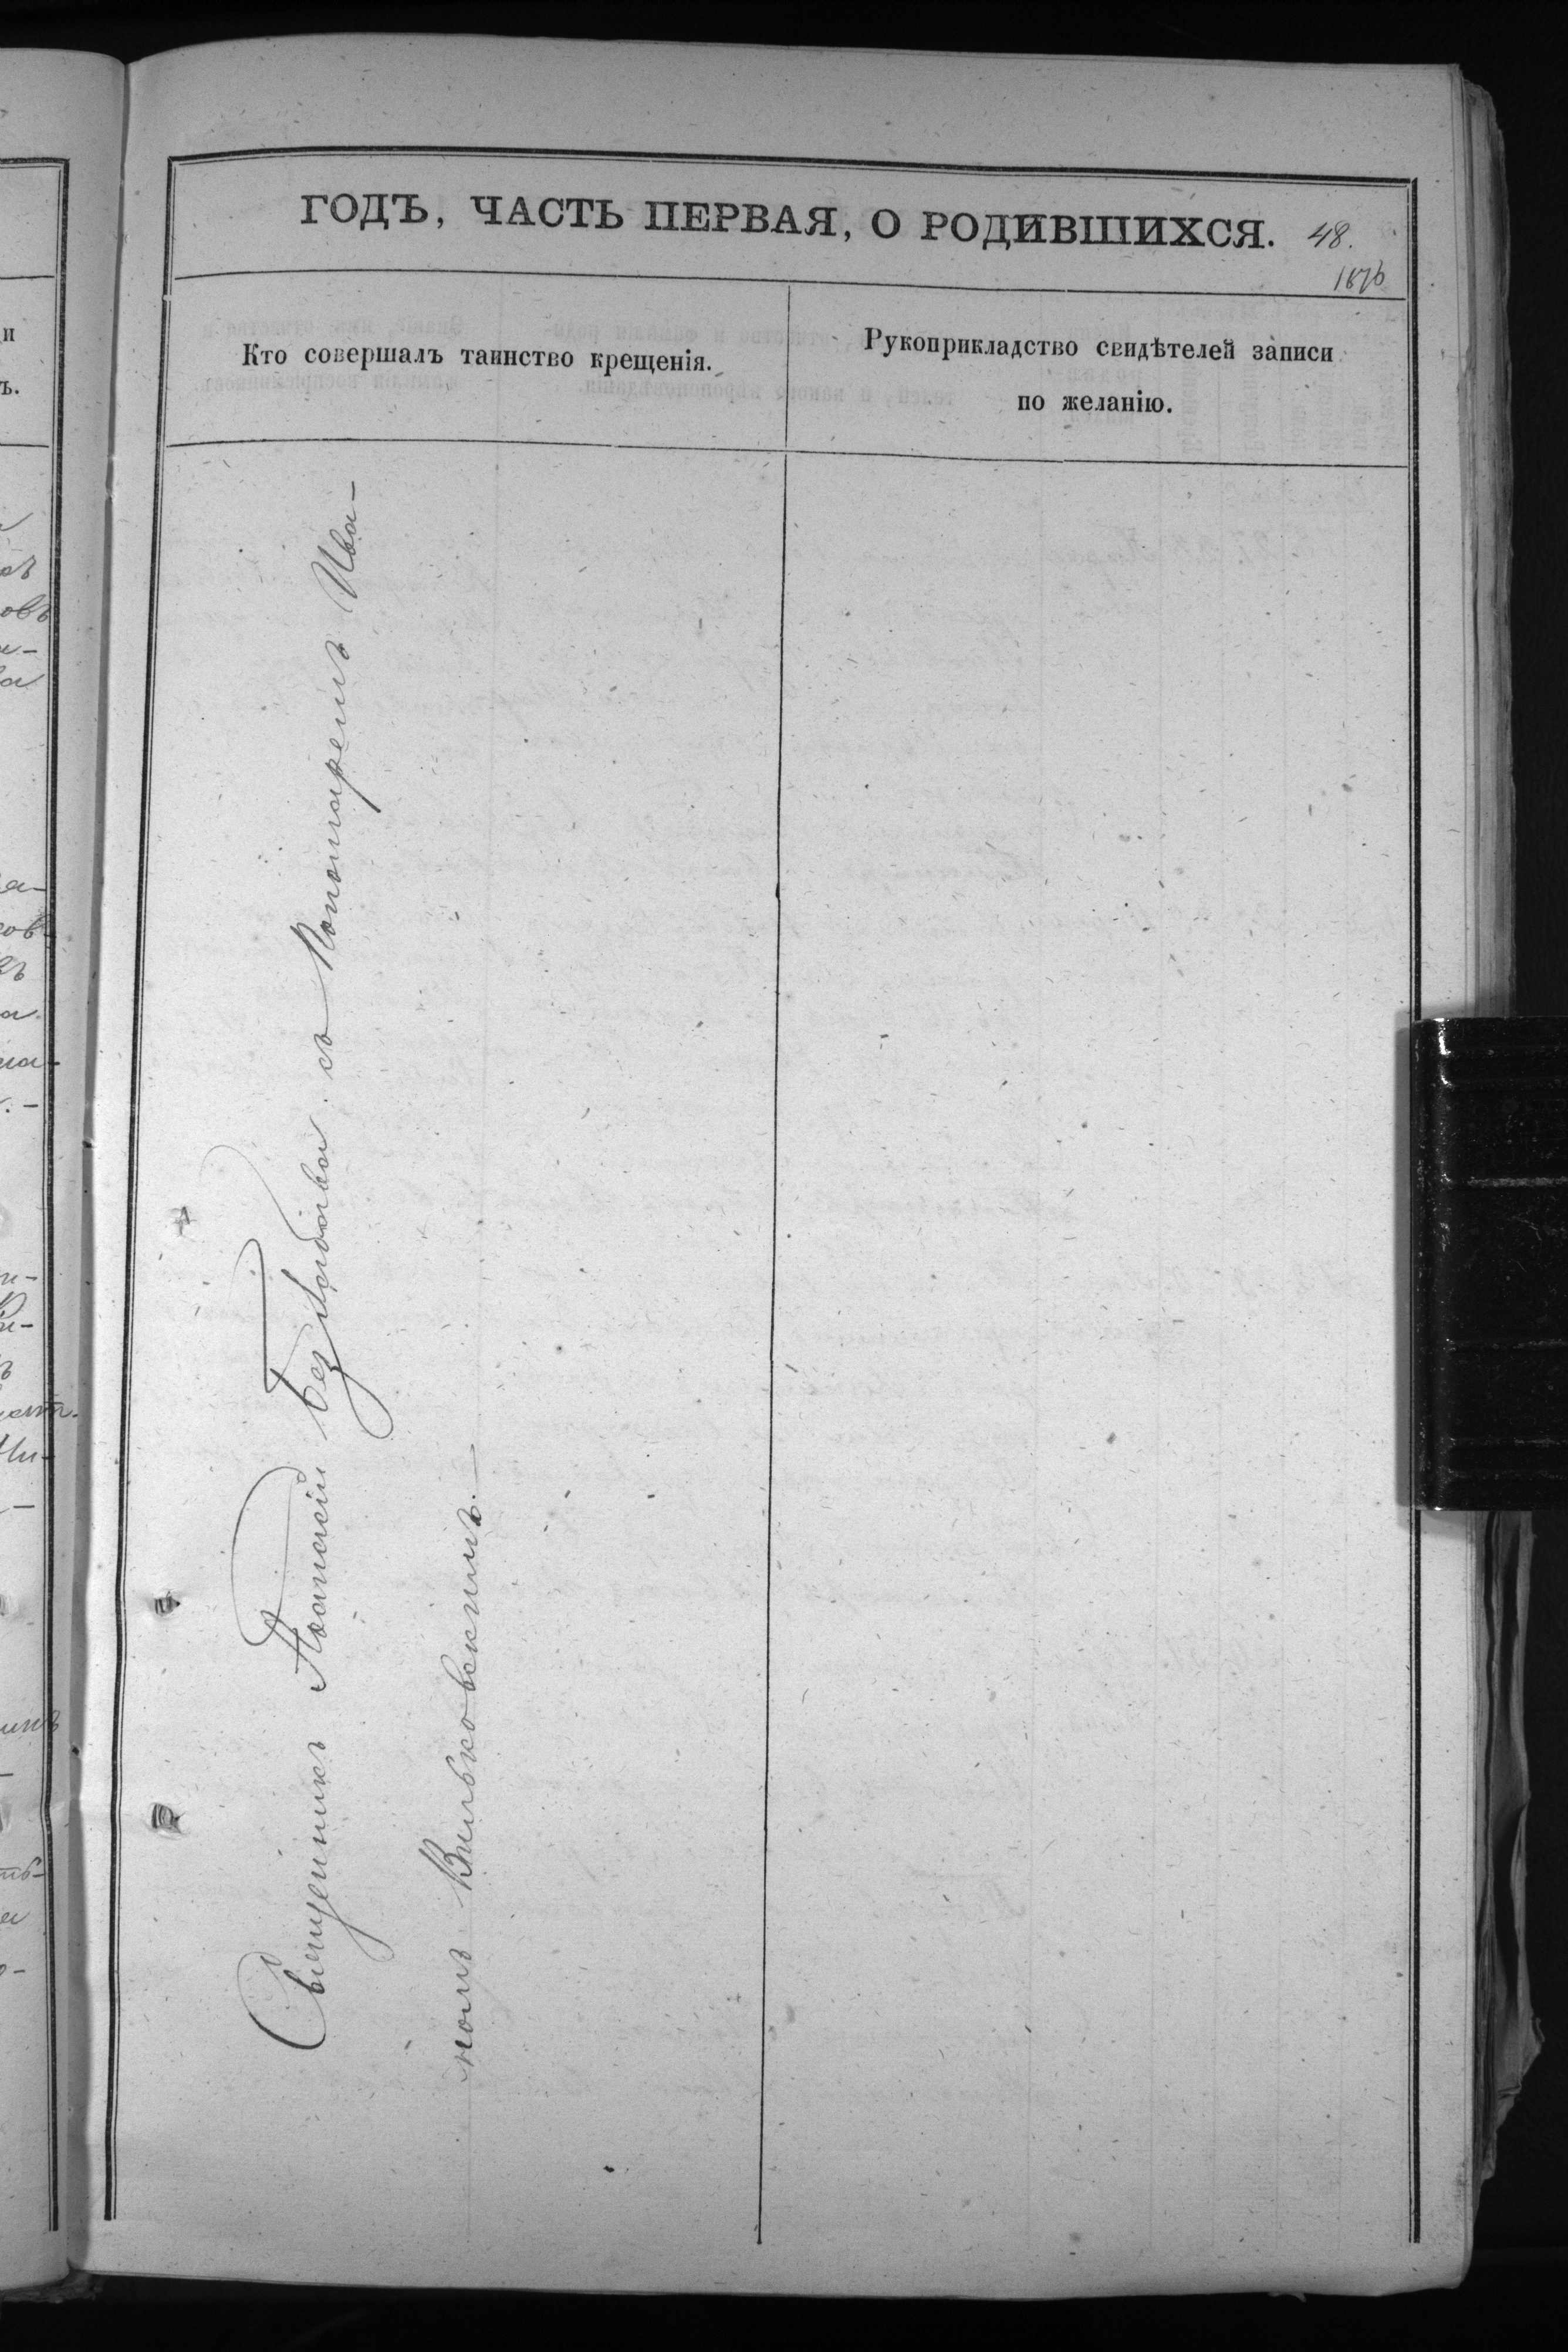 ГОДЪ, ЧАСТЬ ПЕРВАЯ, О РОДИВШИХСЯ.
48.
1876
Кто совершалъ таинство крещенія.
Рукоприкладство свидѣтелей записи
по желанію.
Священникъ Паисій съ Пономаремъ Ива-
номъ Вильковскимъ. —